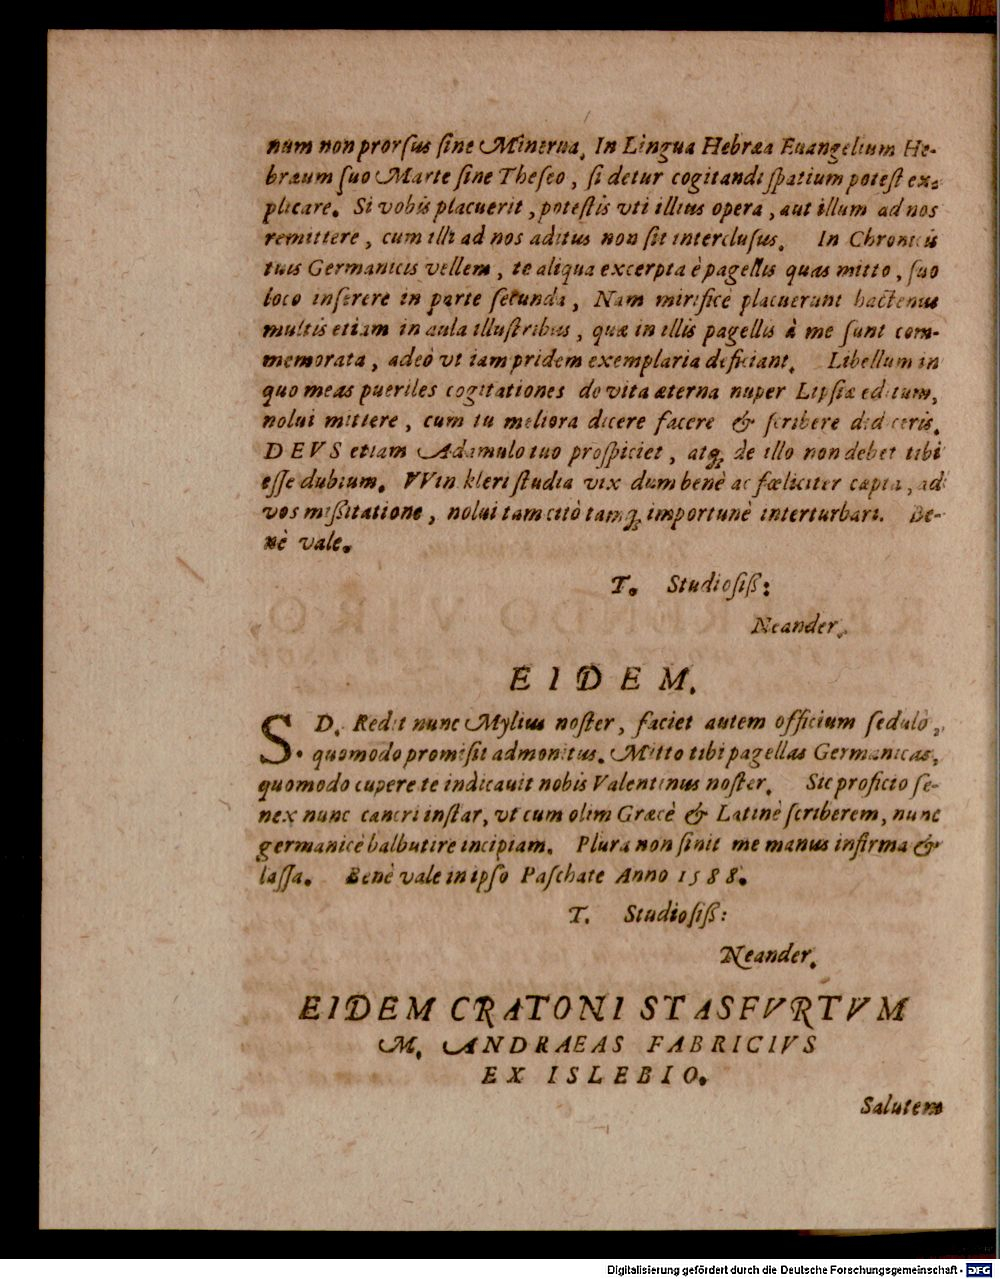 num non prorſus ſine Minerua. In Lingua Hebræa Euangelium He-
bræum ſuo Marte ſine Theſeo, ſi detur cogitandi ſpatium poteſt ex-
plicare. Si vobis placuerit, poteſtis vti illius opera, aut illum ad nos
remittere, cum illi ad nos aditus non ſit intercluſus. In Chronicis
tuis Germanicis vellem, te aliqua excerpta è pagellis quas mitto, ſuo
loco inſerere in parte ſecunda, Nam mirificè placuerunt hactenus
multis etiam in aula illuſtribus, quæ in illis pagellis à me ſunt com-
memorata, adeò vt iam pridem exemplaria deficiant. Libellum in
quo meas pueriles cogitationes de vita æterna nuper Lipſiæ editum,
nolui mittere, cum tu meliora dicere facere & ſcribere didiceris.
DEVS etiam Adamulo tuo proſpiciet, atq; de illo non debet tibi
eſſe dubium. VVinkleri ſtudia vix dum benè ac fœliciter cæpta, ad
vos mißitatione, nolui tam citò tamq; importunè interturbari. Be-
nè vale.
T. Studioſiß:
Neander.
EIDEM.
S. D. Redit nunc Mylius noſter, faciet autem officium ſedulò,
quomodo promiſit admonitus. Mitto tibi pagellas Germanicas,
quomodo cupere te indicauit nobis Valentinus noſter. Sic proficio ſe-
nex nunc cancri inſtar, vt cum olim Græcè & Latinè ſcriberem, nunc
germanicè balbutire incipiam. Plura non ſinit me manus infirma &
laſſa. Benè vale in ipſo Paſchate Anno 1588.
T. Studioſiß:
Neander.
EIDEM CRATONI STASFVRTVM
M. ANDRAEAS FABRICIVS
EX ISLEBIO.
Salutem
Digitalisierung gefördert durch die Deutsche Forschungsgemeinschaft - DFG